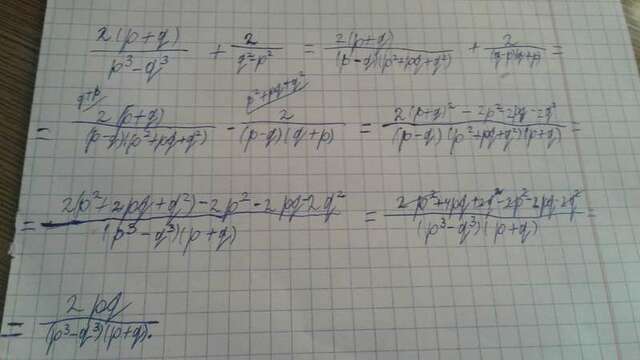 2(p+q)/(p³-q³) + 2/(q²-p²) = 2(p+q)/((p-q)(p²+pq+q²)) + 2/((q-p)(q+p)) =
= 2(p+q)/((p-q)(p²+pq+q²)) (q+p) - 2/((p-q)(q+p)) (p²+pq+q²) = (2(p+q)²-2p²-2pq-2q²)/((p-q)(p²+pq+q²)(p+q)) =
= (2(p²+2pq+q²)-2p²-2pq-2q²)/((p³-q³)(p+q)) = (2p²+4pq+2q²-2p²-2pq-2q²)/((p³-q³)(p+q)) =
= 2pq/((p³-q³)(p+q)).